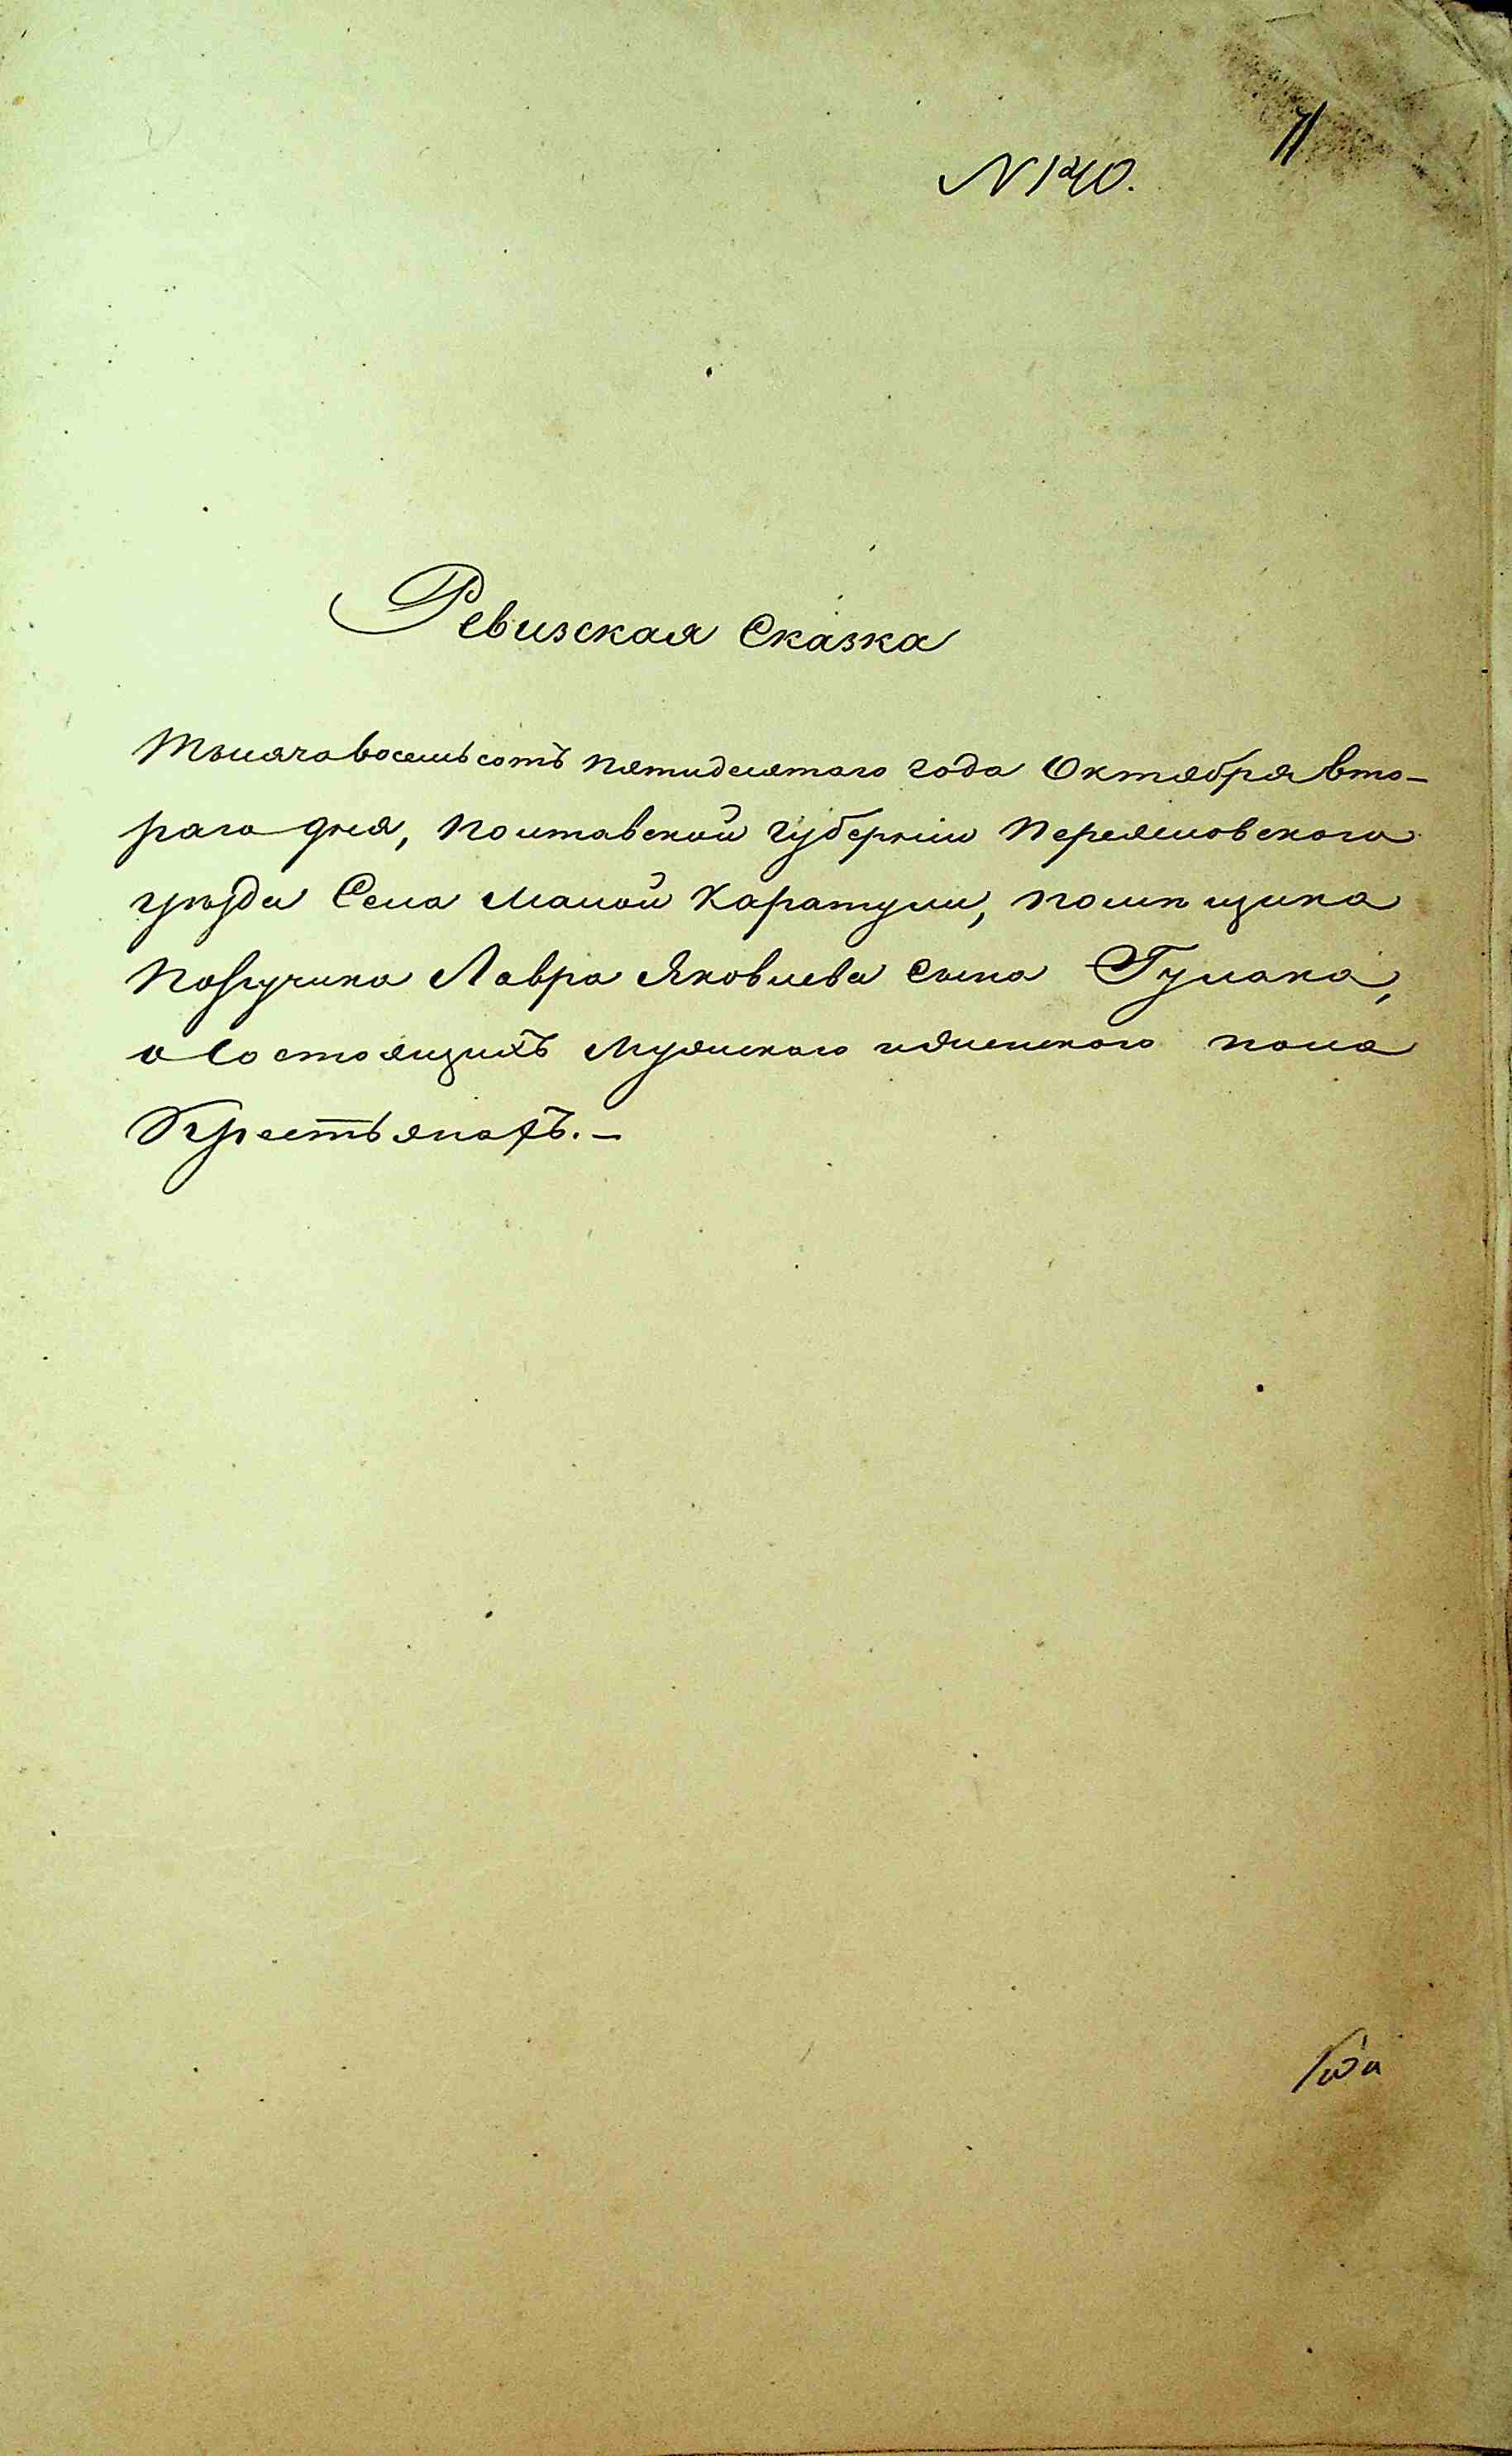 N 140.
Ревизская Сказка
Тысяча восемьсотъ пятидесятого года Октября вто-
раго дня, Полтавской Губерніи Переяславского
уѣзда Села Малой Каратули, помѣщика
Поручика Лавра Яковлева сына Гулака,
о состоящихъ мужеского и женского пола
Крестьянахъ.-